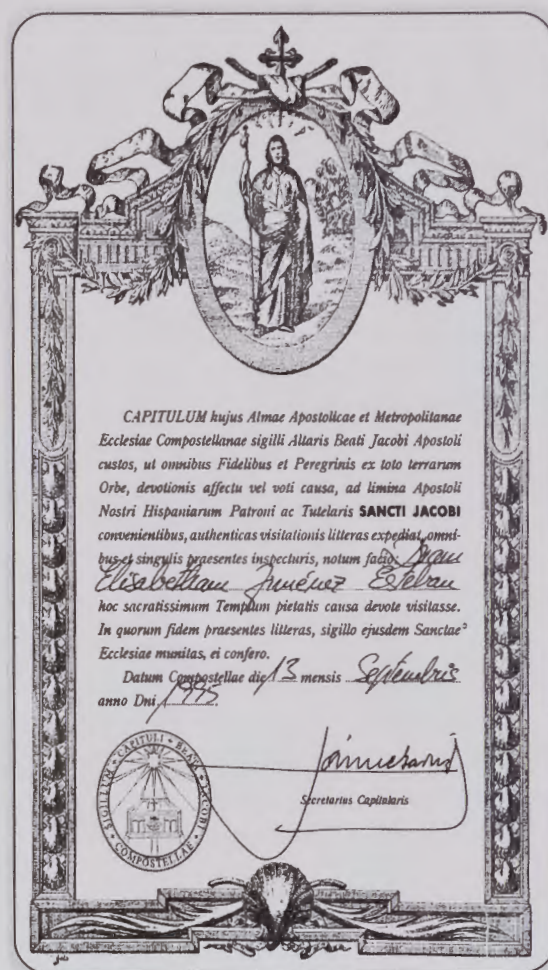 CAPITULUM hujus Almae Apostolicae et Metropolitanae
Ecclesiae Compostellanae sigilli Altaris Beati Jacobi Apostoli
custos, ut omnibus Fidelibus et Peregrinis ex toto terrarum
Orbe, devotionis affectu vel voti causa, ad limina Apostoli
Nostri Hispaniarum Patroni ac Tutelaris SANCTI JACOBI
convenientibus, authenticas visitationis litteras expediat, omni-
bus et singulis praesentes inspecturis, notum facio:
Elisabetham Jiménez Esteban
hoc sacratissimum Templum pietatis causa devote visitasse.
In quorum fidem praesentes litteras, sigillo ejusdem Sanctae
Ecclesiae munitas, ei confero.
Datum Compostellae die 13 mensis Septembris
anno Dni 1995.
SIGILLUM CAPITULI BEATI JACOBI COMPOSTELLAE
Secretarius Capitularis